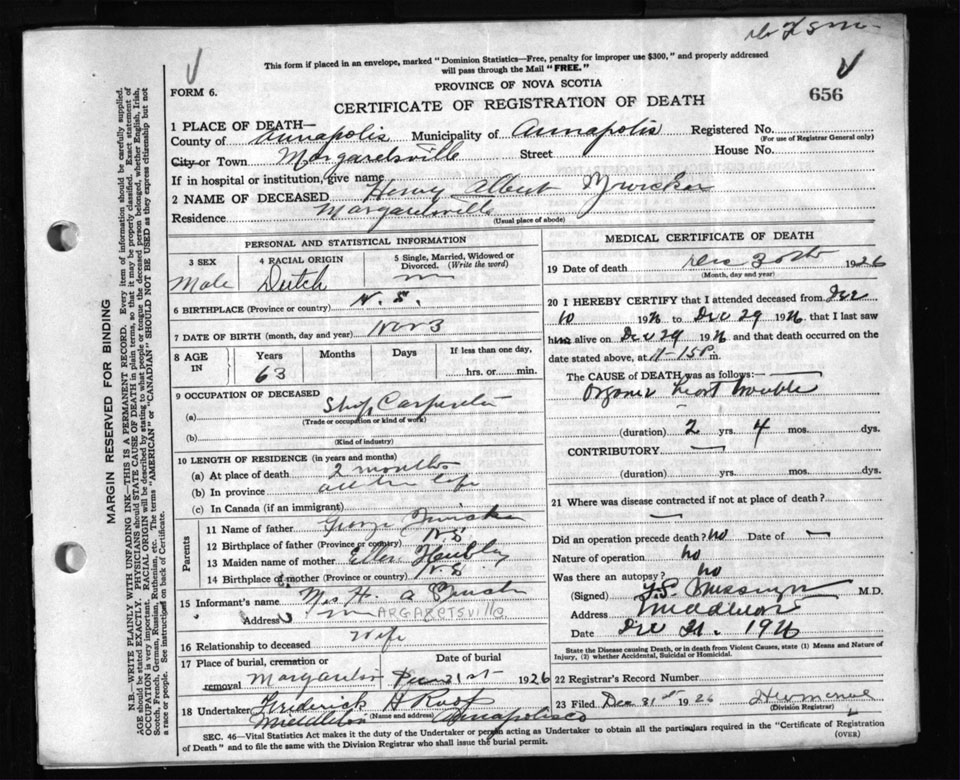 Dr L S M
This form if placed in an envelope, marked "Dominion Statistics—Free, penalty for improper use $300," and properly addressed
will pass through the Mail "FREE."
FORM 6.
PROVINCE OF NOVA SCOTIA
656
CERTIFICATE OF REGISTRATION OF DEATH
1 PLACE OF DEATH—
County of Annapolis Municipality of Annapolis Registered No.
(For use of Registrar General only)
City or Town Margaretsville Street House No.
If in hospital or institution, give name
2 NAME OF DECEASED Henry Albert Zwicker
Residence Margaretsville
(Usual place of abode)
PERSONAL AND STATISTICAL INFORMATION
3 SEX
Male
4 RACIAL ORIGIN
Dutch
5 Single, Married, Widowed or
Divorced. (Write the word)
m
6 BIRTHPLACE (Province or country) N. S.
7 DATE OF BIRTH (month, day and year) Nov 3
8 AGE IN
Years Months Days If less than one day,
63 hrs. or min.
9 OCCUPATION OF DECEASED
(a) Ship Carpenter
(Trade or occupation or kind of work)
(b)
(Kind of industry)
10 LENGTH OF RESIDENCE (in years and months)
(a) At place of death 2 months
(b) In province all his life
(c) In Canada (if an immigrant)
Parents
11 Name of father George Zwicker
12 Birthplace of father (Province or country) N.S
13 Maiden name of mother Ellen Heubley
14 Birthplace of mother (Province or country) N.S
15 Informant's name Mrs H. A
Address MARGARETSVILLE
16 Relationship to deceased Wife
17 Place of burial, cremation or Date of burial
removal Margaretsv 31st 1926
18 Undertaker Frederick H Roop
Middleton (Name and address) Annapolis co
MEDICAL CERTIFICATE OF DEATH
19 Date of death Dec 30th 1926
(Month, day and year)
20 I HEREBY CERTIFY that I attended deceased from Dec
10 1926 to Dec 29 1926 that I last saw
him alive on Dec 29 1926 and that death occurred on the
date stated above, at 11-15 P m.
The CAUSE of DEATH was as follows:
Organic heart trouble
(duration) 2 yrs. 4 mos. dys.
CONTRIBUTORY
(duration) yrs. mos. dys.
21 Where was disease contracted if not at place of death?
Did an operation precede death? no Date of
Nature of operation no
Was there an autopsy? no
(Signed) M.D.
Address Middleton
Date Dec 31. 1926
State the Disease causing Death, or in death from Violent Causes, state (1) Means and Nature of
Injury, (2) whether Accidental, Suicidal or Homicidal.
22 Registrar's Record Number
23 Filed Dec 31st 1926
(Division Registrar)
SEC. 46—Vital Statistics Act makes it the duty of the Undertaker or person acting as Undertaker to obtain all the particulars required in the "Certificate of Registration
of Death" and to file the same with the Division Registrar who shall issue the burial permit.
(OVER)
MARGIN RESERVED FOR BINDING
N.B.—WRITE PLAINLY WITH UNFADING INK—THIS IS A PERMANENT RECORD. Every item of information should be carefully supplied.
AGE should be stated EXACTLY. PHYSICIANS should STATE CAUSE OF DEATH in plain terms, so that it may be properly classified. Exact statement of
OCCUPATION is very important. RACIAL ORIGIN will be described by stating to what people or tongue the deceased person belonged, whether English, Irish,
Scotch, French, German, Russian, Ruthenian, etc. The terms "AMERICAN" or "CANADIAN" SHOULD NOT BE USED as they express citizenship but not
a race or people. See instructions on back of Certificate.